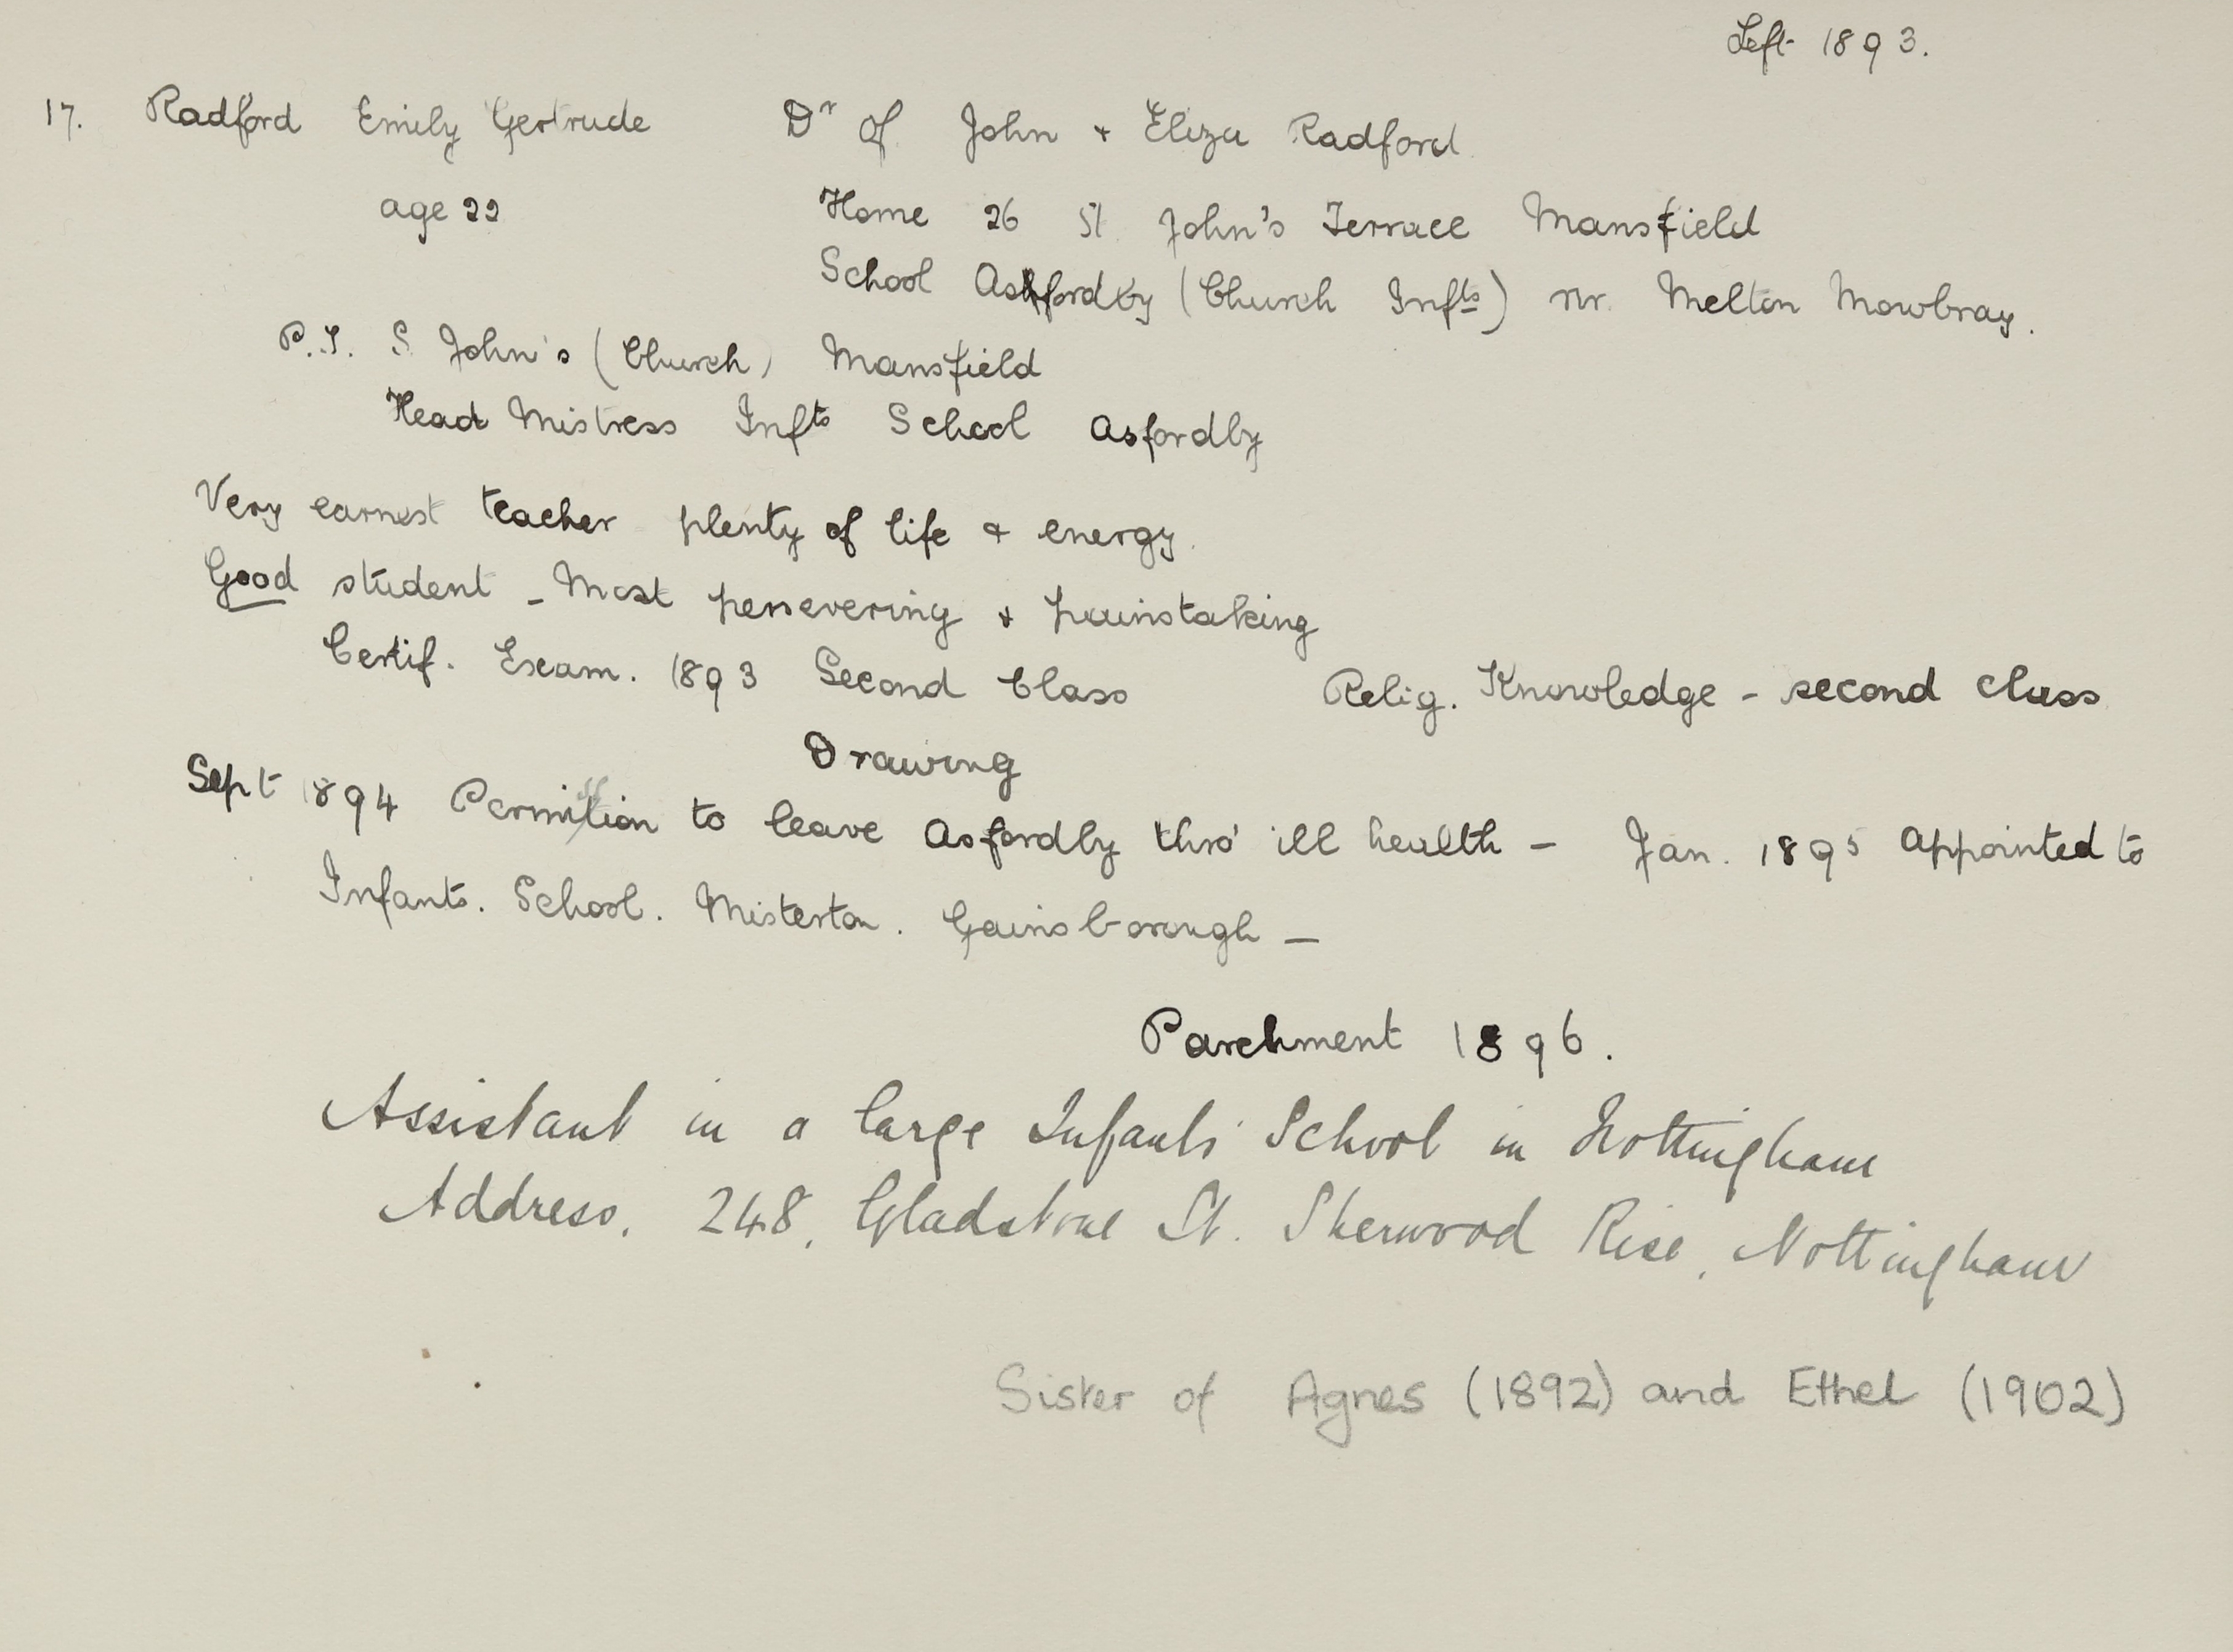 Left 1893.
17. Radford Emily Gertrude Dr of John + Eliza Radford
age 22 Home 26 St John's Terrace Mansfield
School Asfordby (Church Infts) nr. Melton Mowbray.
P.T. S. John's (Church) Mansfield
Head Mistress Infts School Asfordby
Very earnest teacher plenty of life & energy.
Good student - Most persevering + painstaking
Certif. Exam. 1893 Second Class Relig. Knowledge - second class
Drawing
Sept 1894 Permission to leave Asfordby thro' ill health - Jan. 1895 Appointed to
Infants. School. Misterton. Gainsborough -
Parchment 1896.
Assistant in a large Infants' School in Nottingham
Address. 248, Gladstone St. Sherwood Rise, Nottingham
Sister of Agnes (1892) and Ethel (1902)